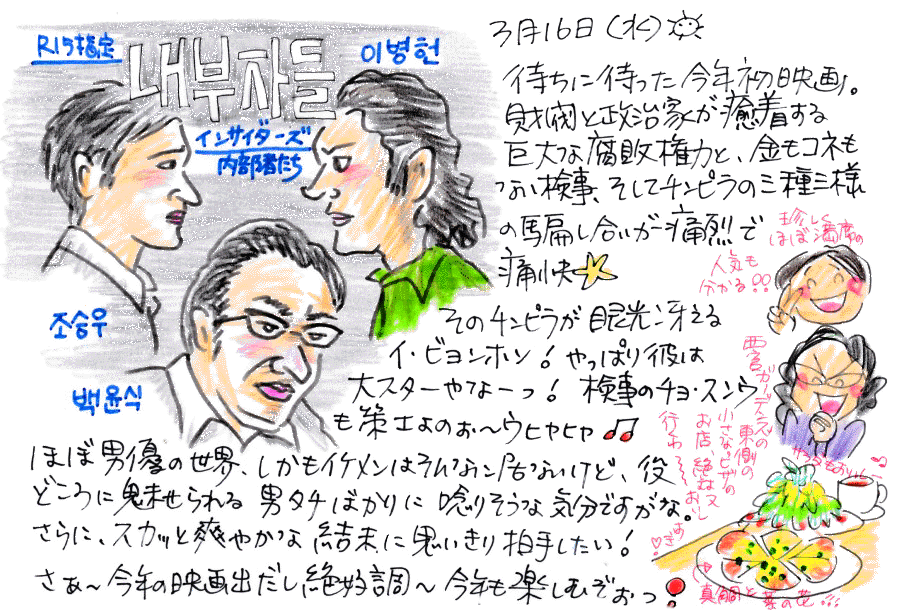 R15指定
내부자들
이병헌
インサイダーズ
内部者たち
조승우
백윤식
3月16日(水)
待ちに待った今年初映画。
財閥と政治家が癒着する
巨大な腐敗権力と、金もコネも
ない検事、そしてチンピラの三種三様
の馬扁し合いが痛烈で
痛快
そのチンピラが眼光冴える
イ・ビョンホン！やっぱり彼は
大スターやなーっ！検事のチョ・スンウ
も策士よのぉ〜ウヒヤヒヤ
ほぼ男優の世界、しかもイケメンはそんなに居ないけど、役
どころに魅せられる男タチばかりに唸りそうな気分ですがな。
さらに、スカッと爽やかな結末に思いきり拍手したい！
さぁ〜今年の映画出だし絶好調〜今年も楽しむぞぉっ！
珍しく
ほぼ満席の
人気も
分かる!!
西宮ガーデンズの
東側の
小さなピザの
お店、絶対又
行おっ〜
サラダもおいし
真鯛と菜の花!!!